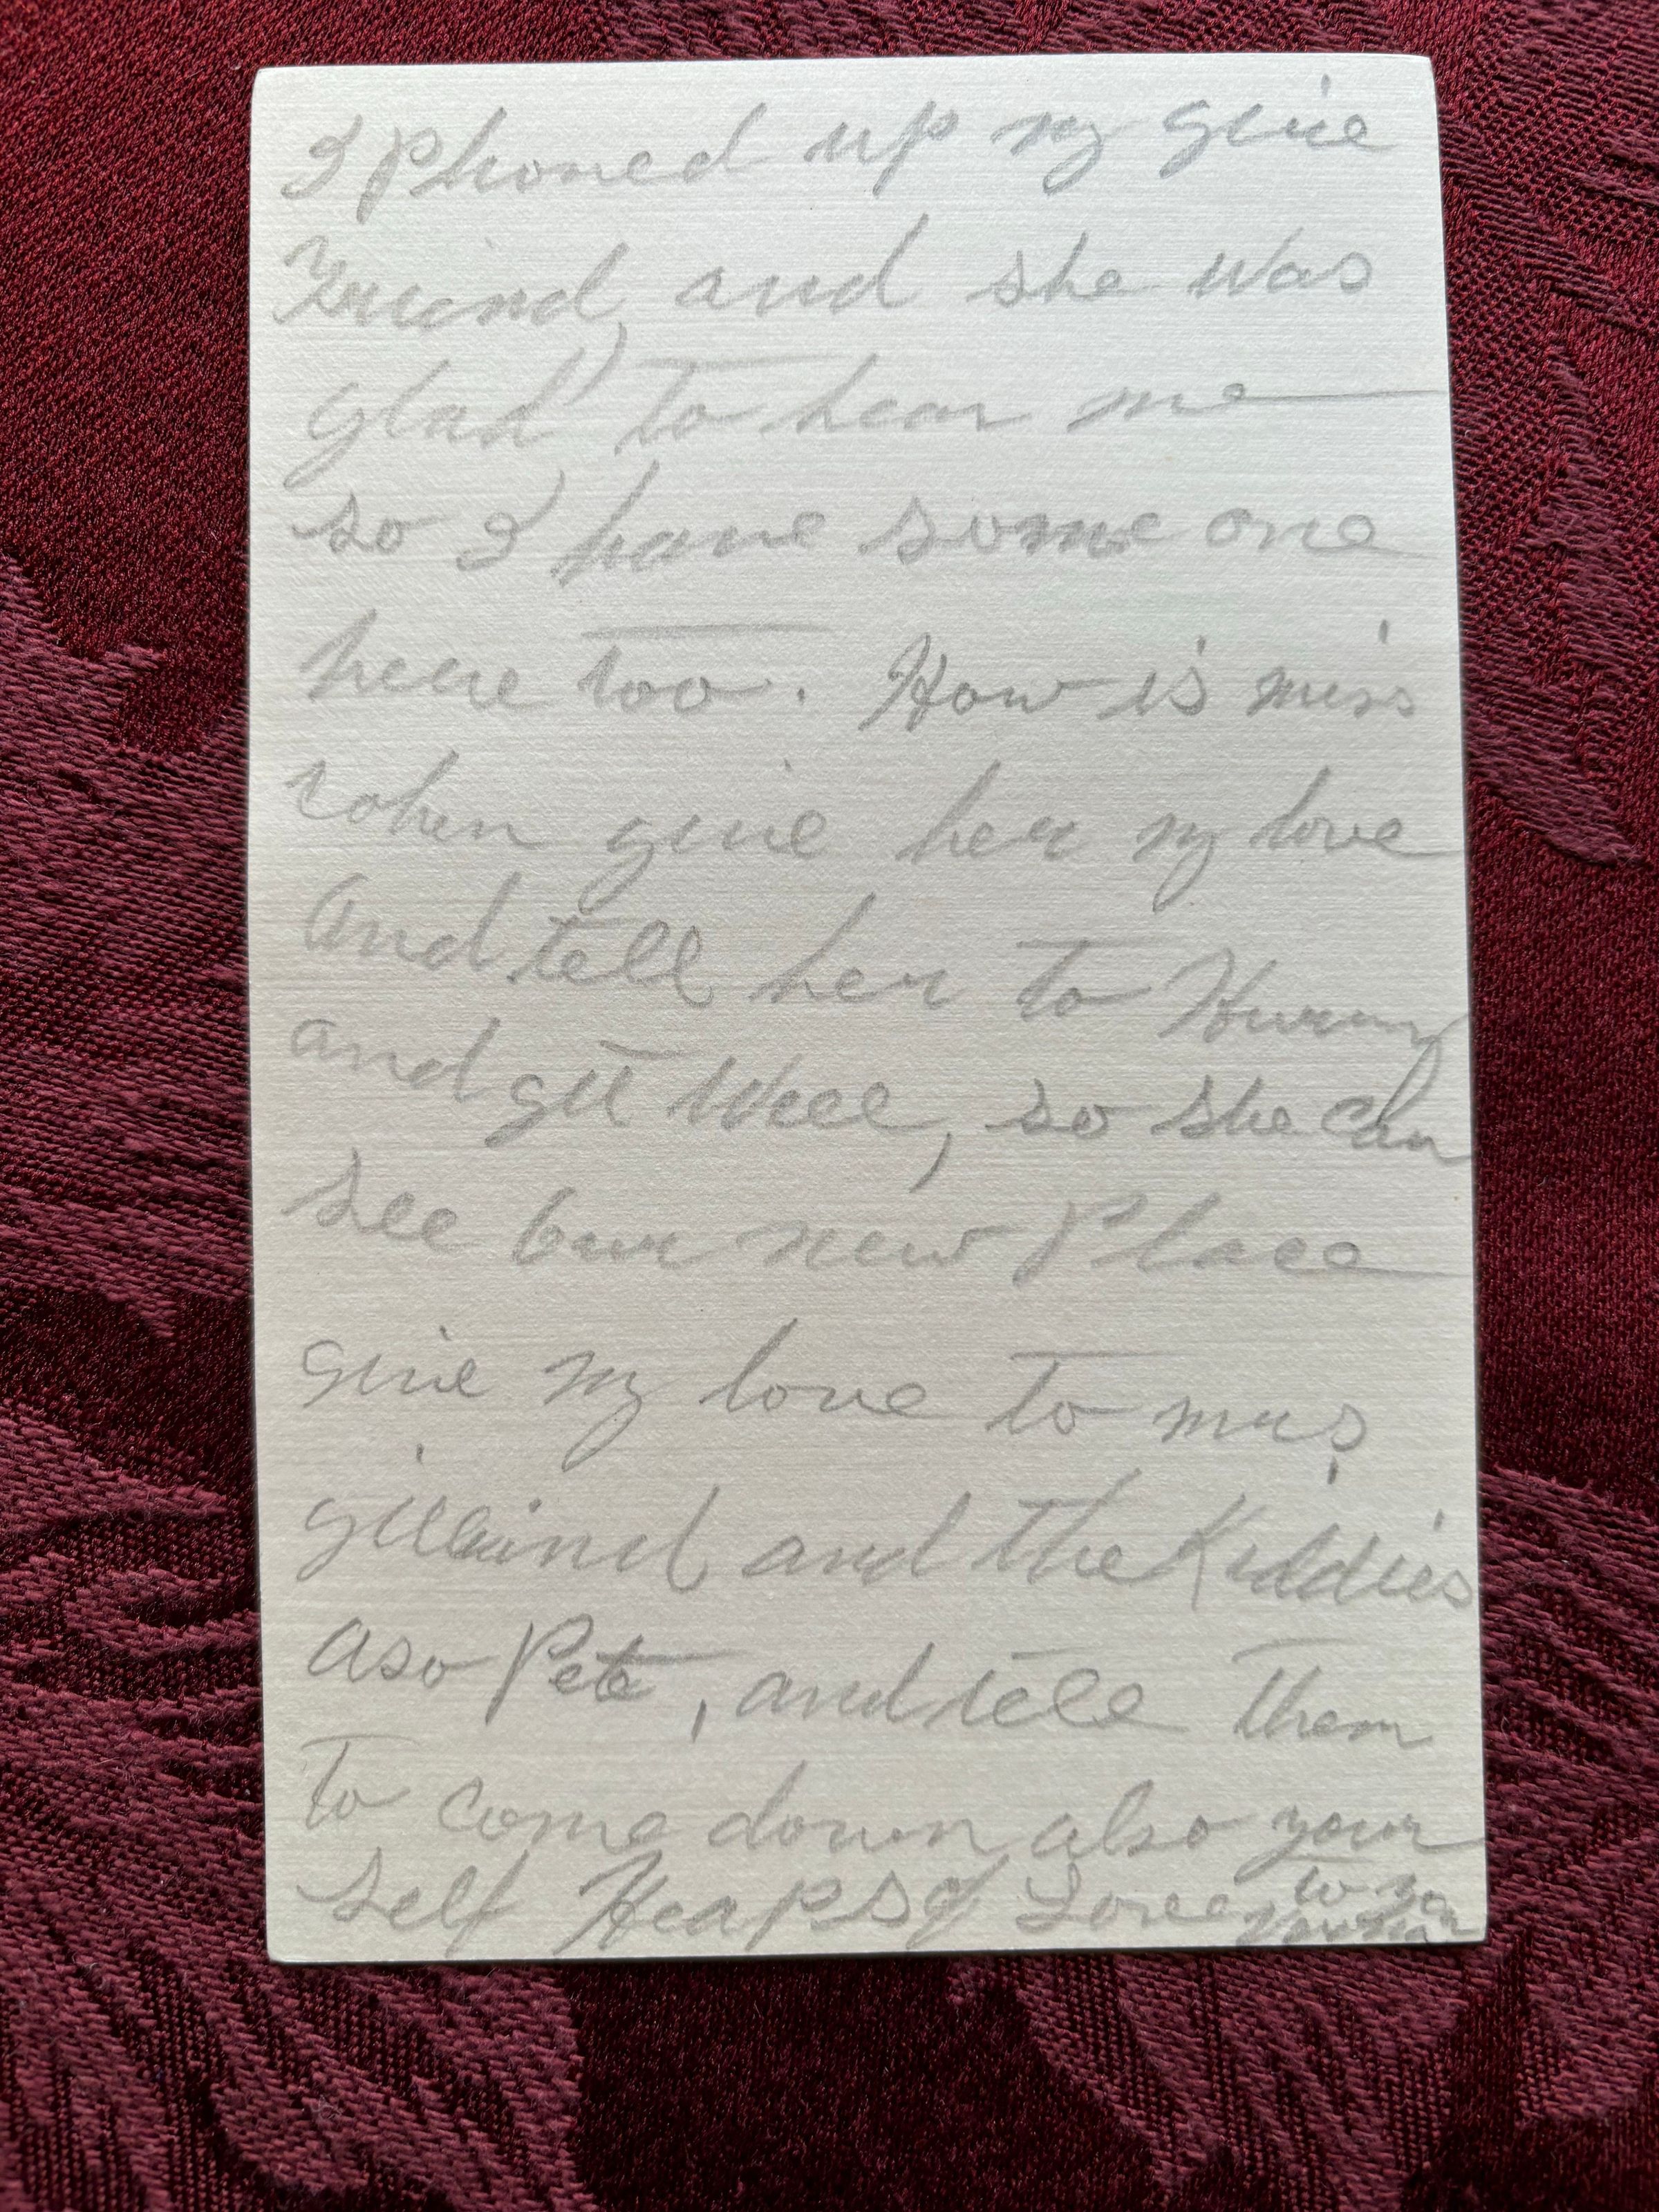 I Phoned up my girl
Friend, and she was
glad to hear me
so I have some one
here too. How is miss
cohen give her my love
and tell her to Hurry
and get Well, so she can
see our new Place
give my love to mrs
and the Kiddies
aso Pete, and tell them
to come down also your
self Heaps of Love to you